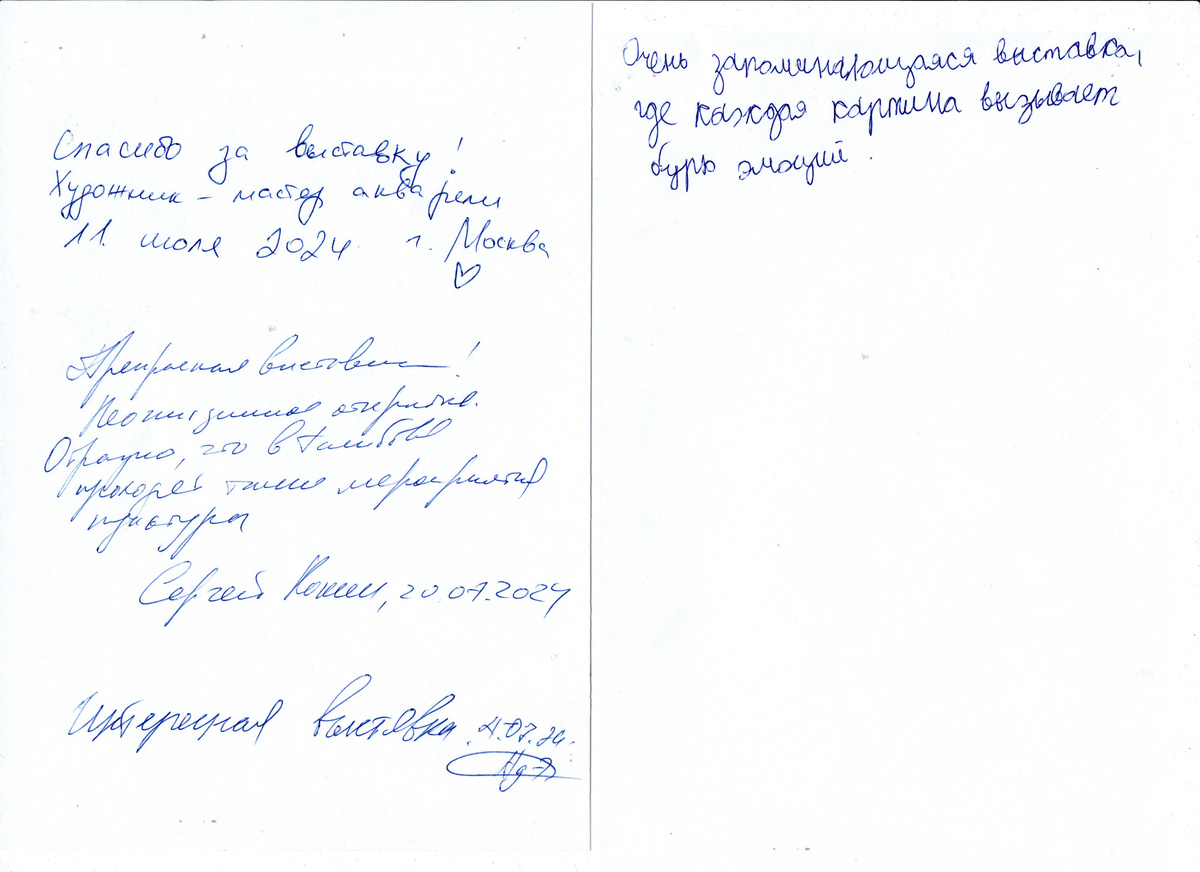 Спасибо за выставку!
Художник – мастер акварели
11 июля 2024 г. Москва
Прекрасная выставка!
Неожиданное открытие.
Отрадно, что в Тамбове
проходят такие мероприятия
культуры
Сергей 20.07.2024
Интересная выставка
Очень запоминающаяся выставка,
где каждая картина вызывает
бурю эмоций.